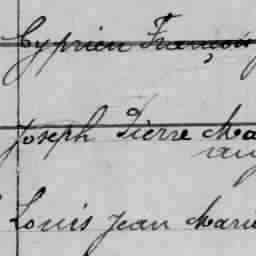 Cyprien François
Joseph Pierre Ma
Louis Jean Marie